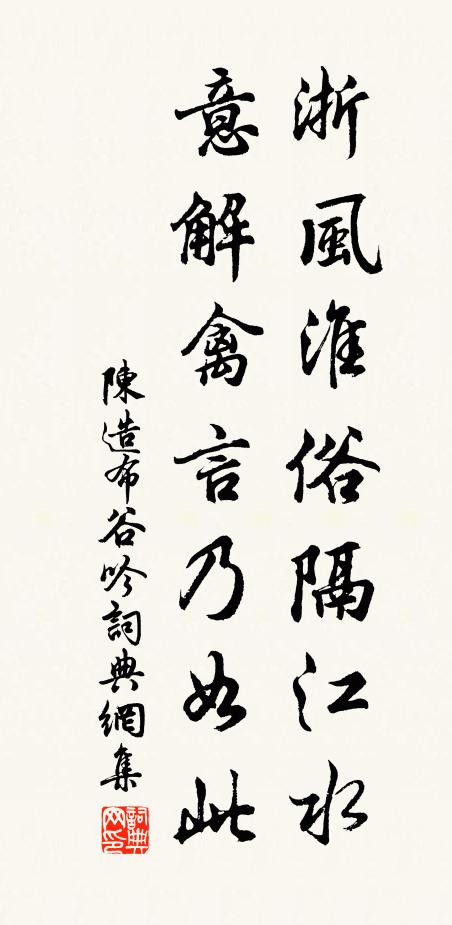 浙風淮俗隔江水
意解禽言乃如此
陳造布谷吟詞典網集
詞典
网印